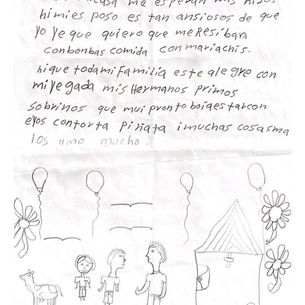 me esperan mis hijos
himi es poso es tan ansiosos de que
yo ye que quiero que me Resiban
con bonbas comida con mariachis.
hique toda mi Familia este alegre con
mi yegada mis Hermanos primos
sobrinos que mui pronto boia estar con
eyos con torta Piñata i muchas cosas ma
los amo mucho.